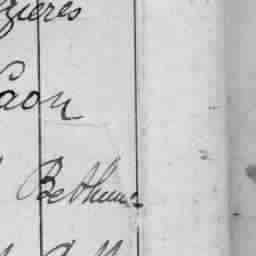 zieres
Laon
Bethune